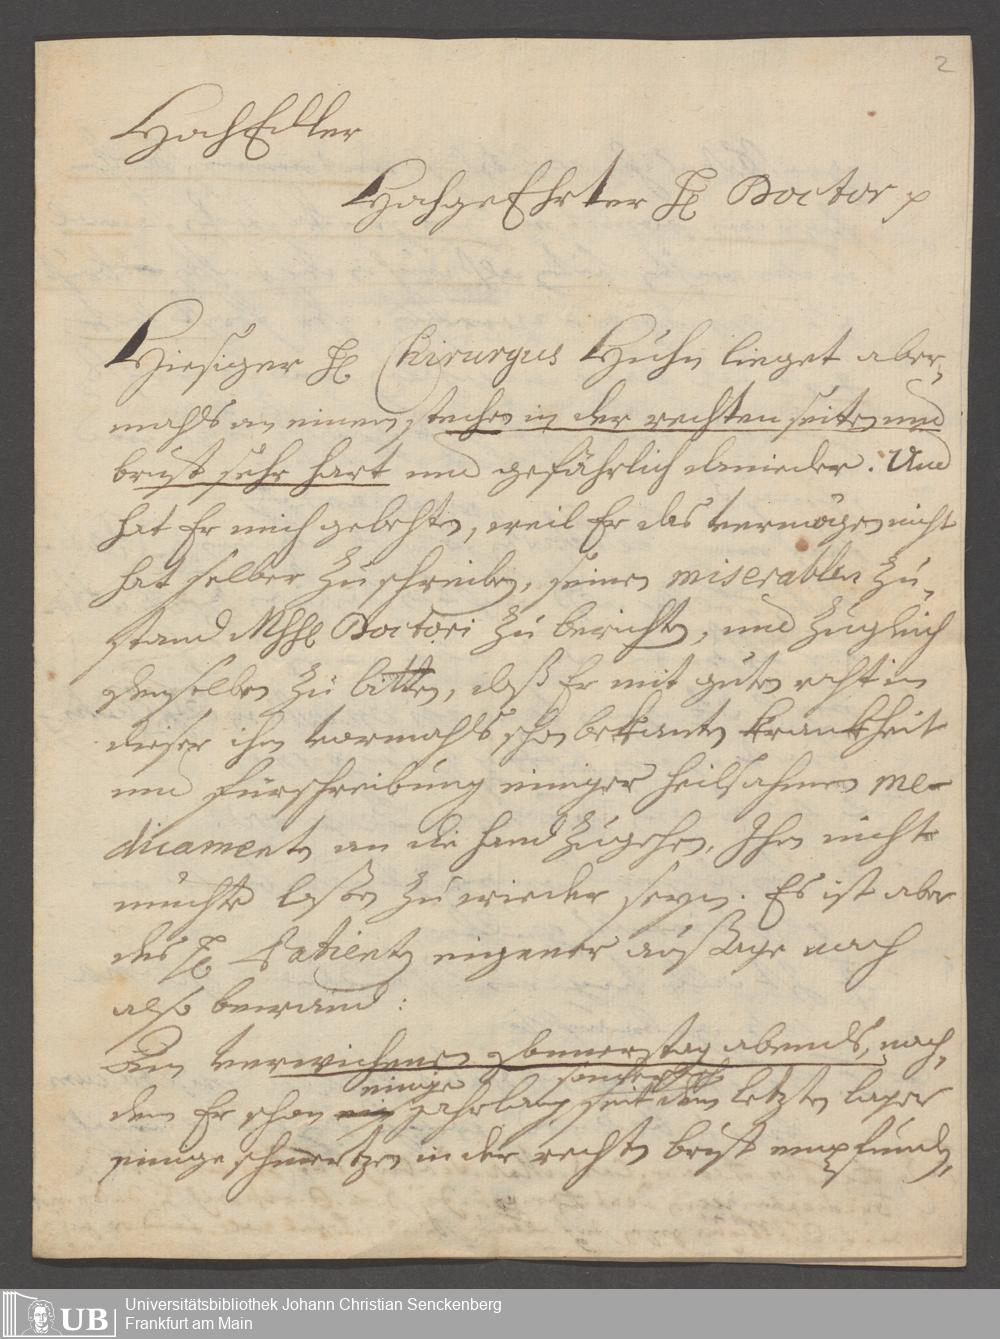 2
HochEdler
HochgeEhrter H. Doctor p
Hiesiger H. Chirurgus Huhn lieget aber-
mahls an einem stechen in der rechten seiten und
brust sehr hart und gefährlich darnieder. Und
hat Er mich gebehten, weil Er das vermögen nicht
hat selber zu schreiben, seinen miserablen Zu-
stand MhH. Doctori zu berichten, und zugleich
denselben zu bitten, daß Er mit guten raht in
dieser ihm vormahls schon bekkanten krankheit
und fürschreibung einiger heilsahmen me-
dicamenten an die hand zugehen, Ihm nicht
möchte laßen zu wieder seyn. Es ist aber
des H. Patienten eigener außsage nach
also bewand:
Am verwichenen Donnerstag abends, nach-
einige sonderlich
dem Er schon ein jahrlang seit dem letzten lager
einige schmertzen in der rechten brust empfunden,
Universitätsbibliothek Johann Christian Senckenberg
Frankfurt am Main
UB